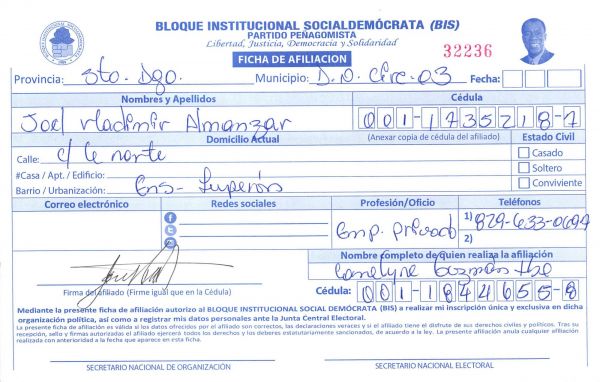 BLOQUE INSTITUCIONAL SOCIALDEMÓCRATA (BIS)
PARTIDO PEÑAGOMISTA
Libertad, Justicia, Democracia y Solidaridad
32236
FICHA DE AFILIACION
Provincia: Sto. Dgo. Municipio: D.N. Circ-03 Fecha:
Nombres y Apellidos Cédula
Joel Vladimir Almanzar 001-1735218-7
Domicilio Actual (Anexar copia de cédula del afiliado) Estado Civil
Calle: c/ le norte Casado
#Casa / Apt. / Edificio: Soltero
Barrio / Urbanización: Ens- Luperón Conviviente
Correo electrónico Redes sociales Profesión/Oficio Teléfonos
Emp. Privado 1) 829-633-0694
2)
Nombre completo de quien realiza la afiliación
Guzmán
Firma del afiliado (Firme igual que en la Cédula) Cédula: 001-1844655-8
Mediante la presente ficha de afiliación autorizo al BLOQUE INSTITUCIONAL SOCIAL DEMÓCRATA (BIS) a realizar mi inscripción única y exclusiva en dicha
organización política, así como a registrar mis datos personales ante la Junta Central Electoral.
La presente ficha de afiliación es válida si los datos ofrecidos por el afiliado son correctos, las declaraciones veraces y si el afiliado tiene el disfrute de sus derechos civiles y políticos. Tras su
recepción, sello y firma autorizada el afiliado ejercerá todos los derechos y los deberes estatutariamente sancionados, de acuerdo a la ley. La presente afiliación anula cualquier afiliación
realizada con anterioridad a la fecha que aparece en esta ficha.
SECRETARIO NACIONAL DE ORGANIZACIÓN SECRETARIO NACIONAL ELECTORAL